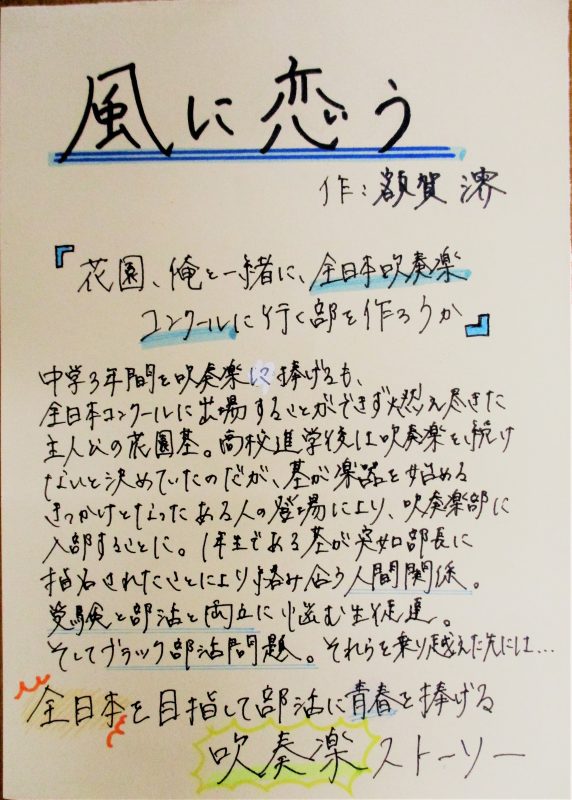 風に恋う
作：額賀 澪
『花園、俺と一緒に、全日本吹奏楽
コンクールに行く部を作ろうか』
中学3年間を吹奏楽に捧げるも、
全日本コンクールに出場することができず燃え尽きた
主人公の花園基。高校進学後は吹奏楽を続け
ないと決めていたのだが、基が楽器を始める
きっかけとなったある人の登場により、吹奏楽部に
入部することに。1年生である基が突如部長に
指名されたことにより絡み合う人間関係。
受験と部活と両立に悩む生徒達。
そしてブラック部活問題。それらを乗り越えた先には…
全日本を目指して部活に青春を捧げる
吹奏楽ストーリー